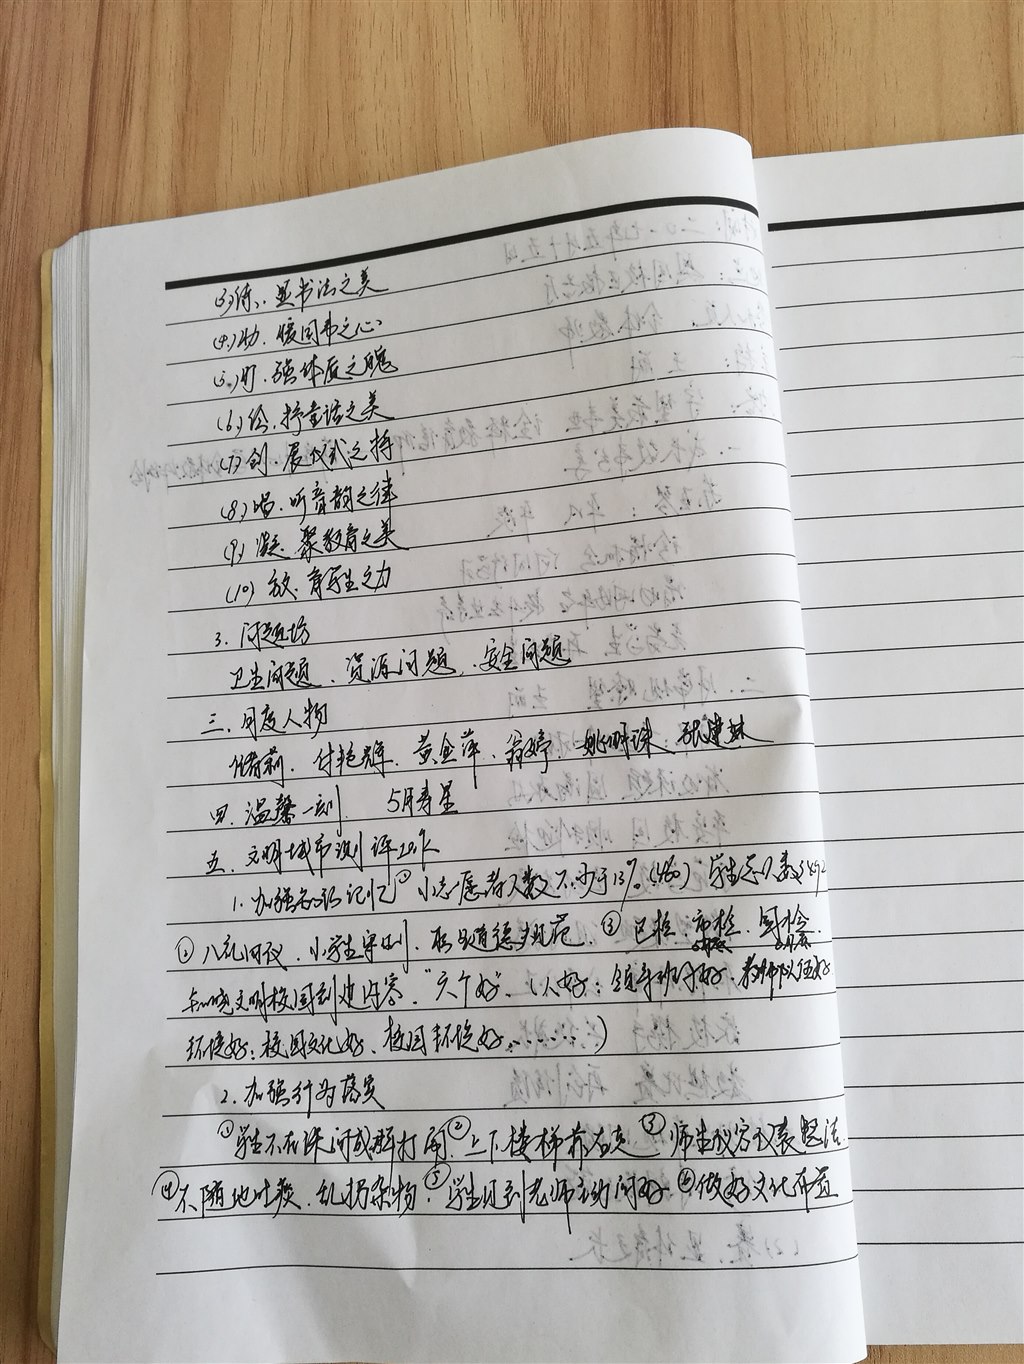 (3) 练、显书法之美
(4) 幼、暖园书之心
(5) 叮、强体质之魄
(6) 绘、抒童话之美
(7) 创、展仪式之
(8) 唱、听音韵之律
(9) 凝、聚教育之美
(10) 放、育写生之力
3. 问题场
卫生问题、资源问题、安全问题
三、月度人物
储莉、付艳辉、黄金萍、翁婷、姚明珠、张建林
四、温馨一刻 5月寿星
五、文明城市测评
1. 加强知识记忆 ① 小志愿者人数不少于13% (460) 学生总人数
② 八礼四仪、小学生守则、职业道德规范 ③ 区检、市检、国检
知晓文明校园创建内容“六个好”(人好:领导班子好、教师队伍好
环境好:校园文化好、校园环境好……)
2. 加强行为落实
① 学生不在课间或打闹 ② 上下楼梯靠右走 ③ 师生仪容仪表整洁
④ 不随地吐痰、乱扔杂物 ⑤ 学生见到老师主动问好 ⑥ 做好文化布置